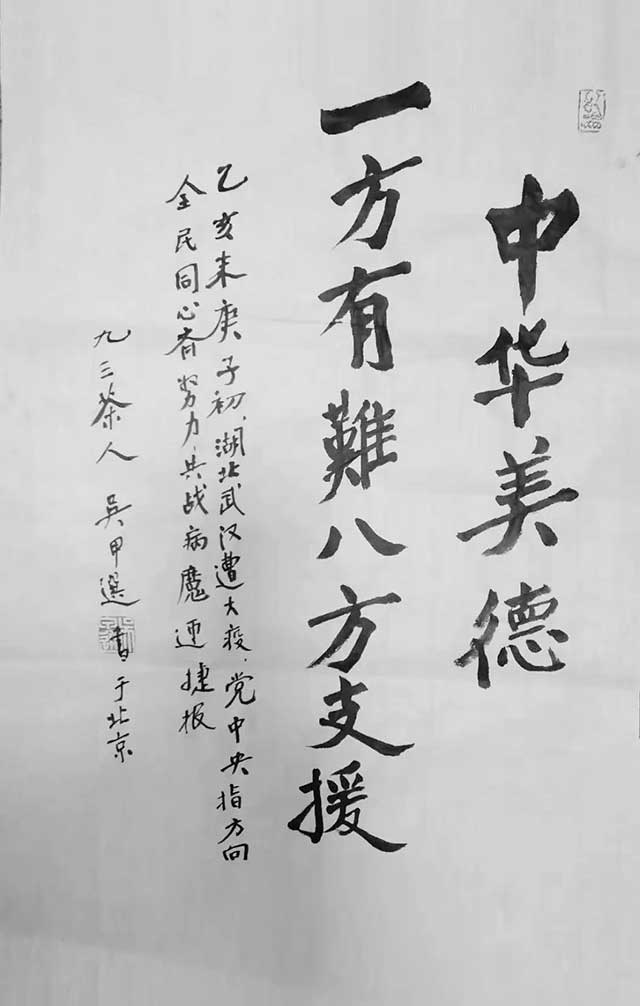 中华美德
一方有難八方支援
乙亥末庚子初，湖北武汉遭大疫，党中央指方向
全民同心齐努力，共战病魔迎捷报
九三荣人 吳甲選 書于北京